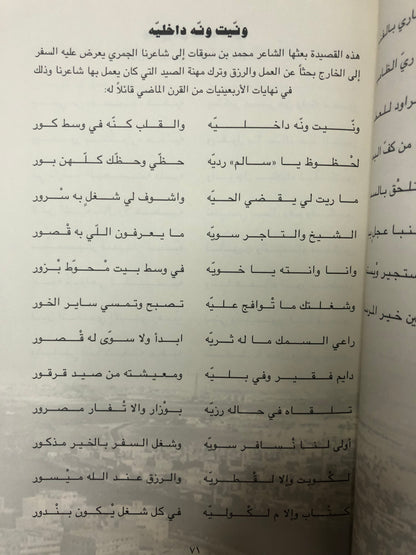 ونّيت ونّه داخليّه
هذه القصيدة بعثها الشاعر محمد بن سوقات إلى شاعرنا الجمري يعرض عليه السفر
إلى الخارج بحثاً عن العمل والرزق وترك مهنة الصيد التي كان يعمل بها شاعرنا وذلك
في نهايات الأربعينيات من القرن الماضي قائلاً له:
ونّيت ونه داخليّه والقلب كنّه في وسط كور
لحْظوظ يا «سالم» رديّه حظّي وحظّك كلّهن بور
ما ريت لي يقضي الحيّه واشوف لي شغلٍ به سْرور
الشيخ والتاجر سويّه ما يعرفون اللّي به قْصور
وانا وانته يا خويّه في وسط بيت مْحوّط بْزور
وشغلتك ما تْوافج عليّه تصبح وتمسي ساير الخور
راعي السمك ما له ثريّه ابداً ولا سوّى له قْصور
دايم فقير وفي بليّه ومعيشته من صيد قرقور
تلقاه في حاله رزيّه بوْزار والا تْفار مصرور
أولى لنا نْسافر سويّه وشغل السفر بالخير مذكور
لكْويت والا لقْطريّه والرزق عند الله ميسور
كتّاب والا م لكْوليّه في كل شغل يْكون بنْدور
٧١